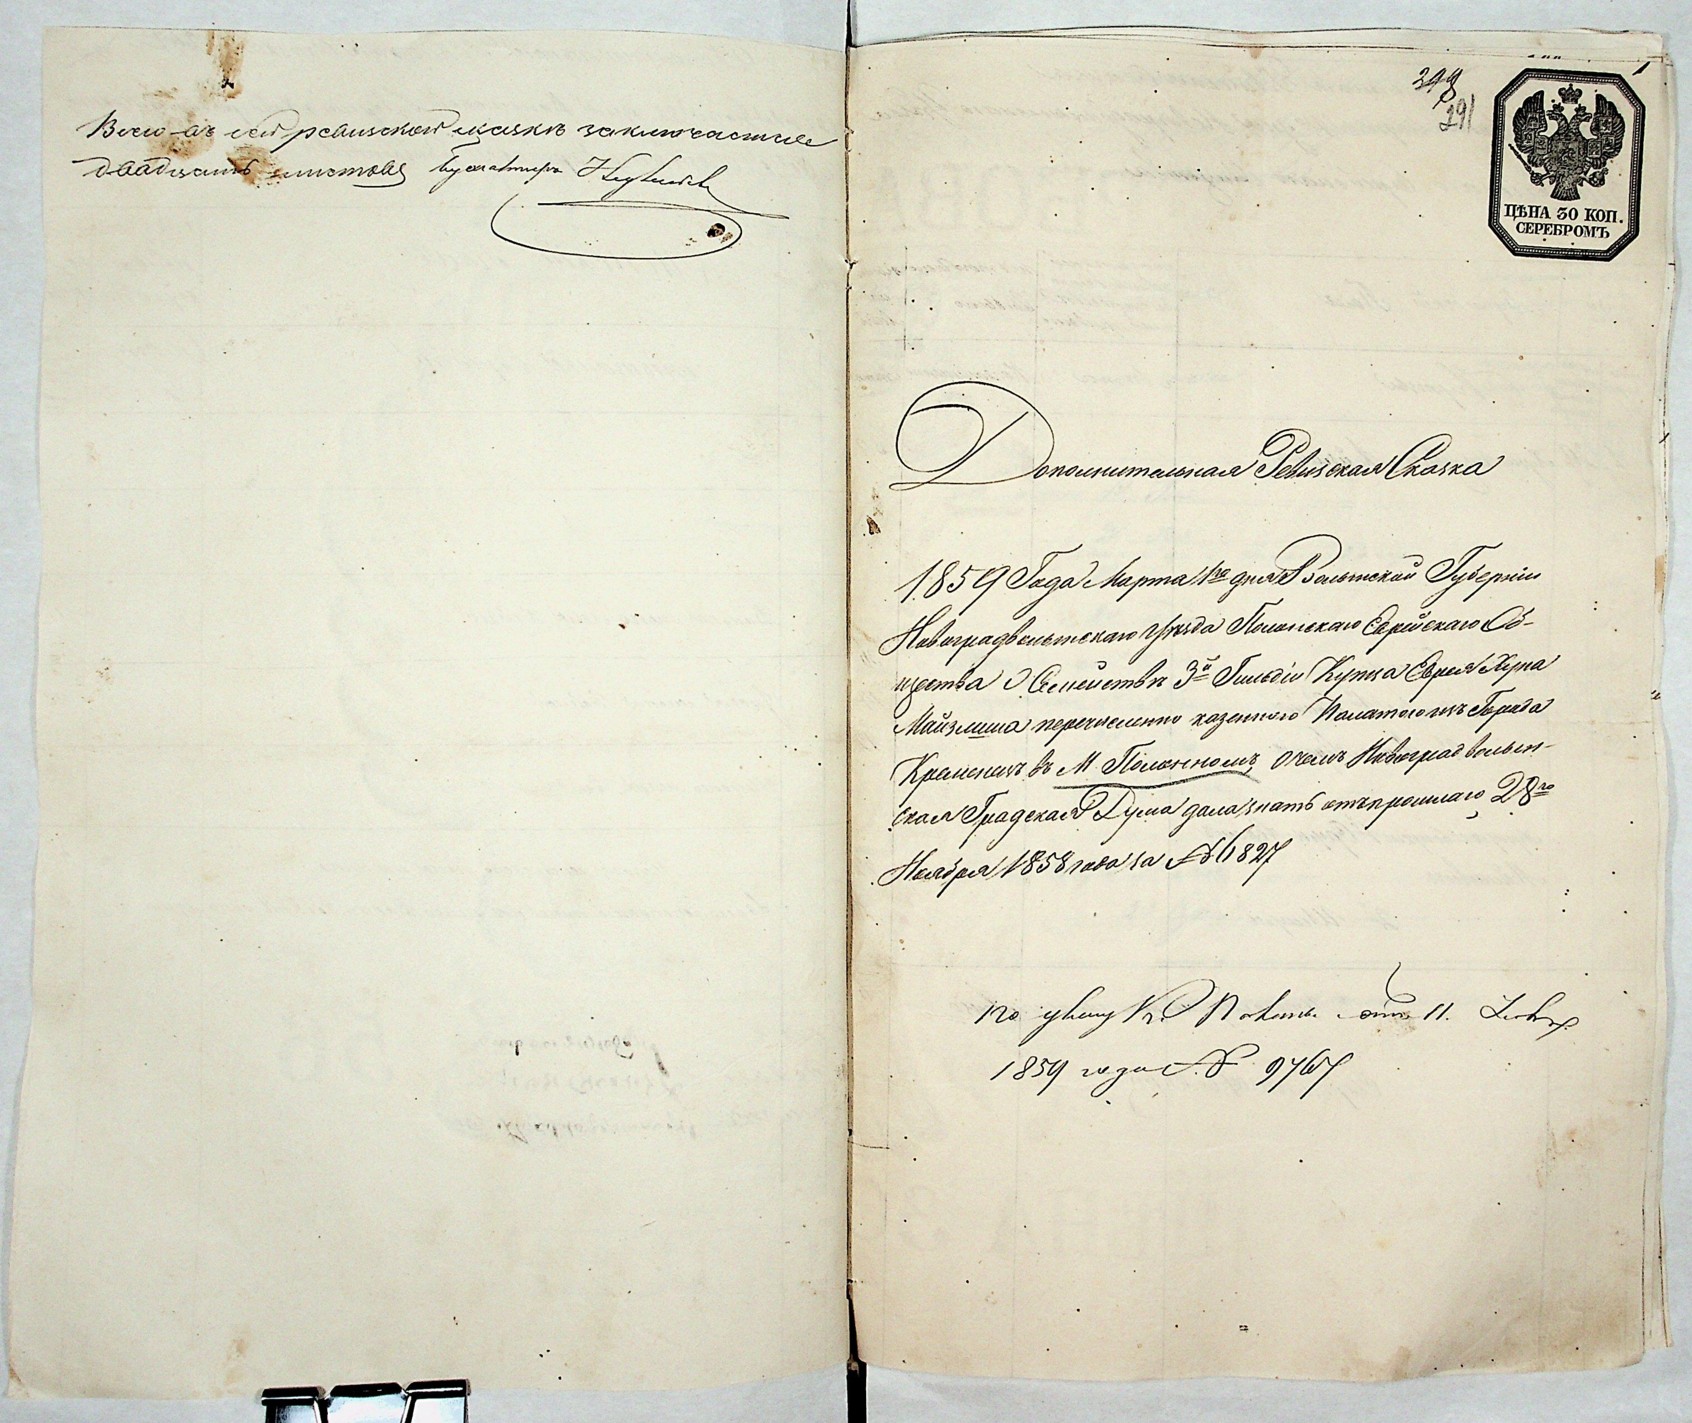 Всего въ сей ревизской сказкѣ заключается
двадцать листовъ Бухгалтеръ
298
291
1
ЦѢНА 30 КОП.
СЕРЕБРОМЪ
Дополнительная Ревизская Сказка
1859 Года Марта 1го дня Волынской Губерніи
Новоградволынскаго Уѣзда Полонскаго Еврейскаго Об-
щества о Семействѣ 3й Гильдіи Купца Еврея Хуна
Майзлиша перечисленно казенною Палатою изъ Города
Кременца въ М. Полонномъ, о чемъ Новоградволын-
ская Градская Дума дала знать отъ прошлаго 28го
Ноября 1858 года за № 6827
По указу К. Палаты отъ 11.
1859 года № 9767